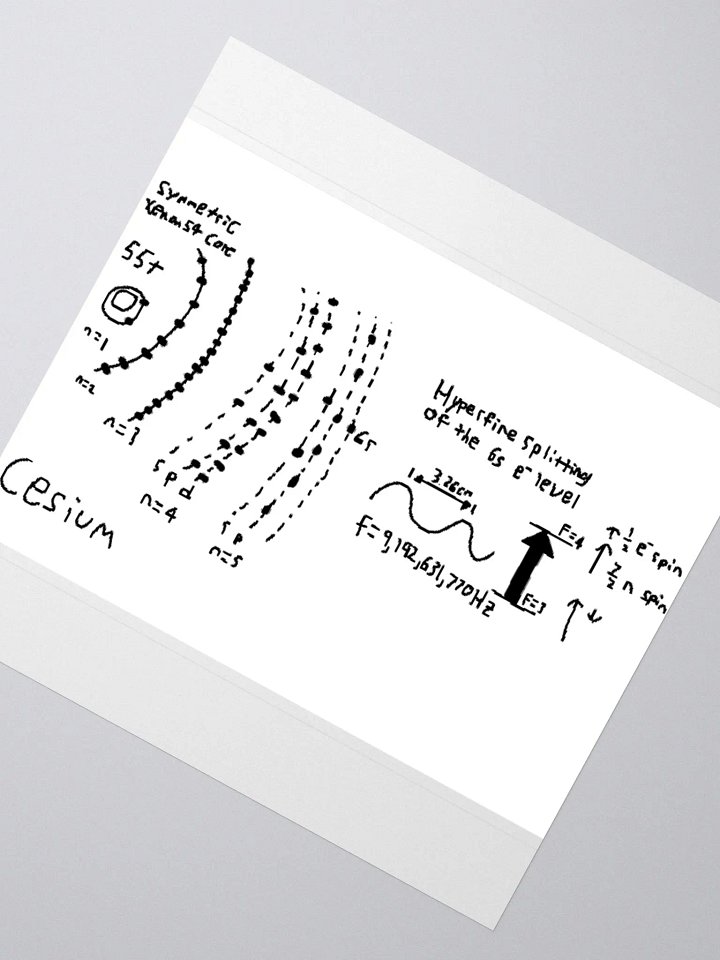 Symmetric
Xenon 54 Core
55+
n=1
n=2
n=3
s p d
n=4
s p
n=5
6s
Cesium
Hyperfine splitting
of the 6s e- level
3.26cm
f=9,192,631,770Hz
F=4
F=3
↑ 1/2 e- spin
↑ 7/2 n spin
↑ ↓